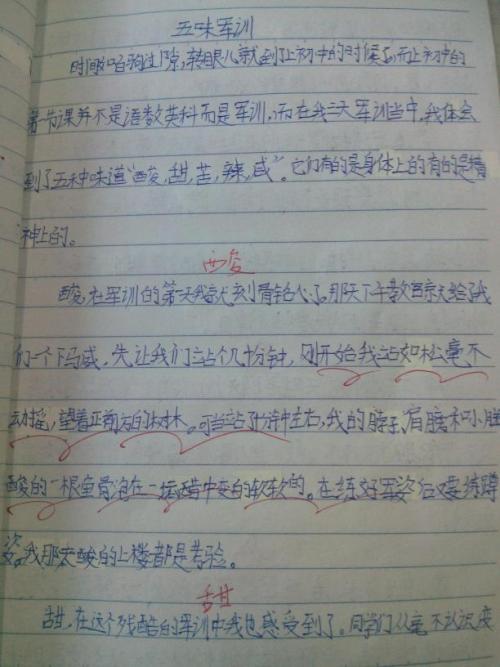 五味军训
时间如白驹过隙,转眼儿就到了上初中的时候了,而上初中的
第一节课并不是语数英科而是军训,而在我三天军训当中,我体会
到了五种味道“酸,甜,苦,辣,咸”。它们有的是身体上的有的是精
神上的。
酸
酸,在军训的第一天我就刻骨铭心了,那天下午教官就给了我
们一个下马威,先让我们站个几十分钟,刚开始我站如松毫不
动摇,望着正前方的树林。可当站了十分钟左右,我的脖子,肩膀和小腿
酸的一根鱼骨泡在一坛醋中变的软软的。在练好军姿后又要练蹲
姿,我那天酸的上楼都是考验。
甜
甜,在这个残酷的军训中我也感受到了。同学们从毫不认识变